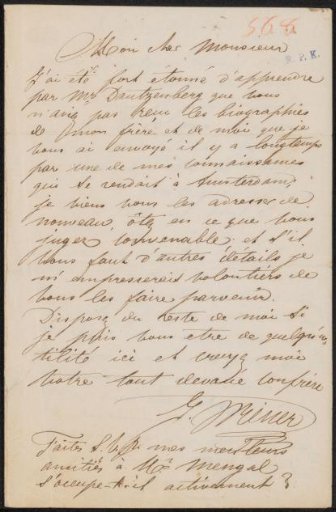 566
R.P.K.
Mon cher Monsieur
J'ai été fort etonné d'apprendre
par Mr Dautzenberg que vous
n'avez pas reçu les biographies
de mon frère et de moi que je
vous ai envoyé il y a longtemps
par une de mes connaissances
qui se rendait à Amsterdam;
je viens vous les adresser de
nouveau, ôtez en ce que vous
jugez convenable, et s'il
vous faut d'autres détails je
m'empresserais volontiers de
vous les faire parvenir.
Disposez du reste de moi si
je puis vous etre de quelqu'u-
tilité ici et croyez moi
votre tout devoué confrère
G. Wiener
Faites S.V.P. mes meilleurs
amitiés à Mr Mengal
s'occupe-t-il activement ?